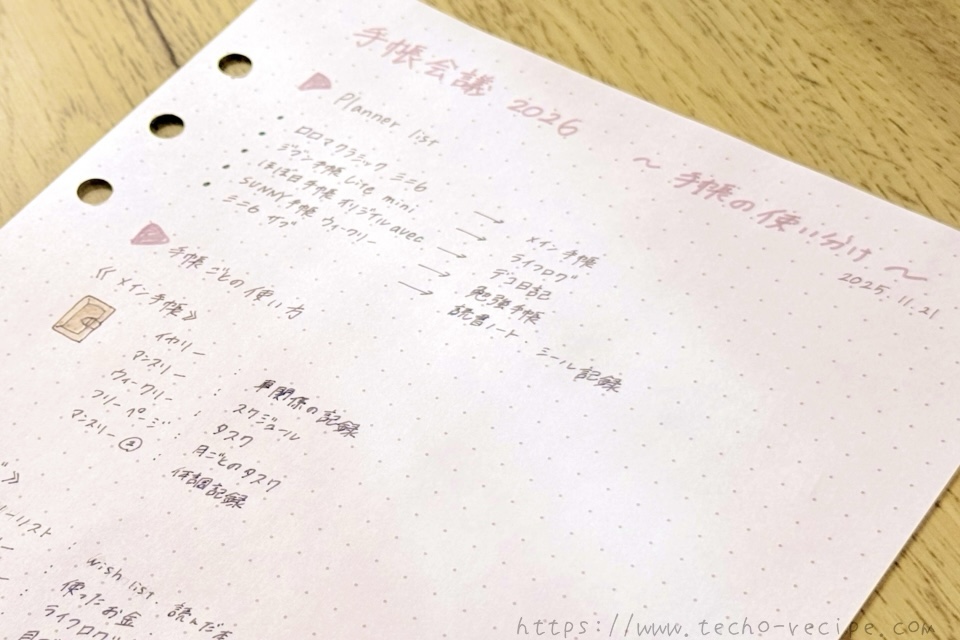 手帳会議 2026
～ 手帳の使い分け ～
2025.11.21
Planner list
・ロロマクラシック ミニ6 → メイン手帳
・ジブン手帳 Lite mini → ライフログ
・ほぼ日手帳 オリジナル avec → デコ日記
・SUNNY手帳 ウィークリー → 勉強手帳
・ミニ6 サブ → 読書ノート・シール記録
手帳ごとの使い方
《メイン手帳》
イヤリー : 関係の記録
マンスリー : スケジュール
ウィークリー : タスク
フリーページ : 月ごとのタスク
マンスリー② : 体調記録
》
ーリスト : wish list、読んだ本
リー : 使ったお金
ライフログ
https://www.techo-recipe.com